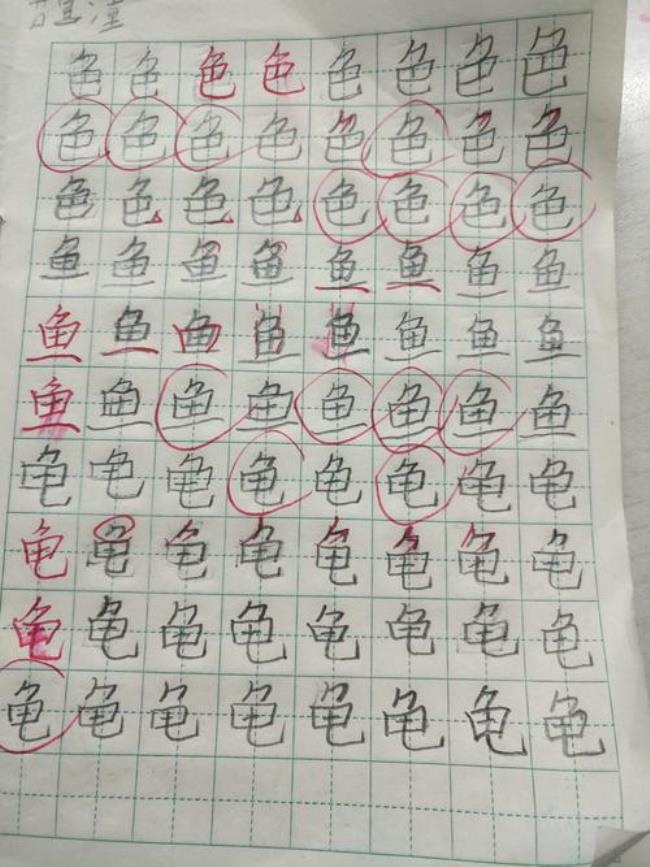 色色色色色色色色
色色色色色色色色
色色色色色色色色
鱼鱼鱼鱼鱼鱼鱼鱼
鱼鱼鱼鱼鱼鱼鱼鱼
鱼鱼鱼鱼鱼鱼鱼鱼
龟龟龟龟龟龟龟龟
龟龟龟龟龟龟龟龟
龟龟龟龟龟龟龟龟
龟龟龟龟龟龟龟龟